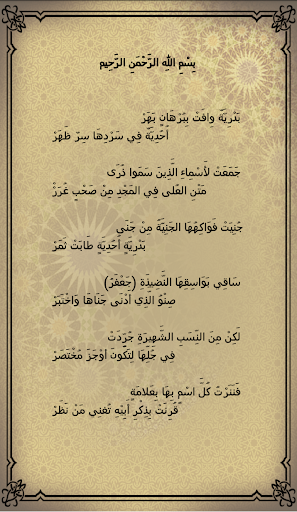 بِسْمِ اللهِ الرَّحْمَنِ الرَّحِيمِ
بَدْرِيَّةٌ وافَتْ بِبُرْهَانٍ بَهَرْ
أُحُدِيَّةٌ فِي سَرْدِهَا سِرٌّ ظَهَرْ
جَمَعَتْ لأَسْمَاءِ الَّذِينَ سَمَوا ذُرَى
مَتْنِ العُلى فِي المَجْدِ مِنْ صَحْبٍ غُرَرْ
جُنِيَتْ فَوَاكِهُهَا الجَنِيَّةُ مِنْ جَنَى
بَدْرِيَةٍ أُحُدِيَةٍ طَابَتْ ثَمَرْ
سَاقِي بَوَاسِقِهَا النَّضِيدَةِ (جَعْفَرٌ)
صِنْوُ الذِي أَدْنَى جَنَاهَا وَاخْتَبَرْ
لَكِنْ مِنَ النِّسَبِ الشَّهِيرَةِ جُرِّدَتْ
فِي جُلِّهَا لِتَكُونَ أَوْجَزَ مُخْتَصَرْ
فَنَثَرْتُ كُلَّ اسْمٍ بِهَا بِعَلامَةٍ
قُرِنَتْ بِذِكْرِ أَبِيْهِ تُغنِي مَنْ نَظَرْ